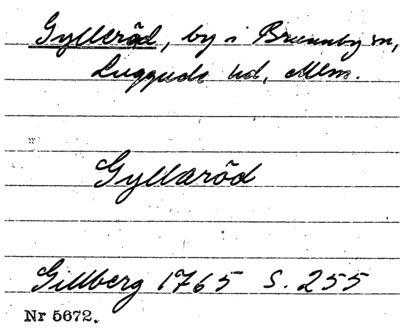 Gylleröd, by i Brunnby sn,
Luggude hd, Mlm.
Gyllaröd
Gillberg 1765 S. 255
Nr 5672.